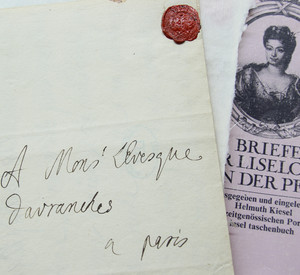 A Mons.r L'evesque
d'avranches
a paris
BRIEFE
R LISELO
N DER PF
sgegeben und eingelei
Helmuth Kiesel
zeitgenössischen Por
insel taschenbuch